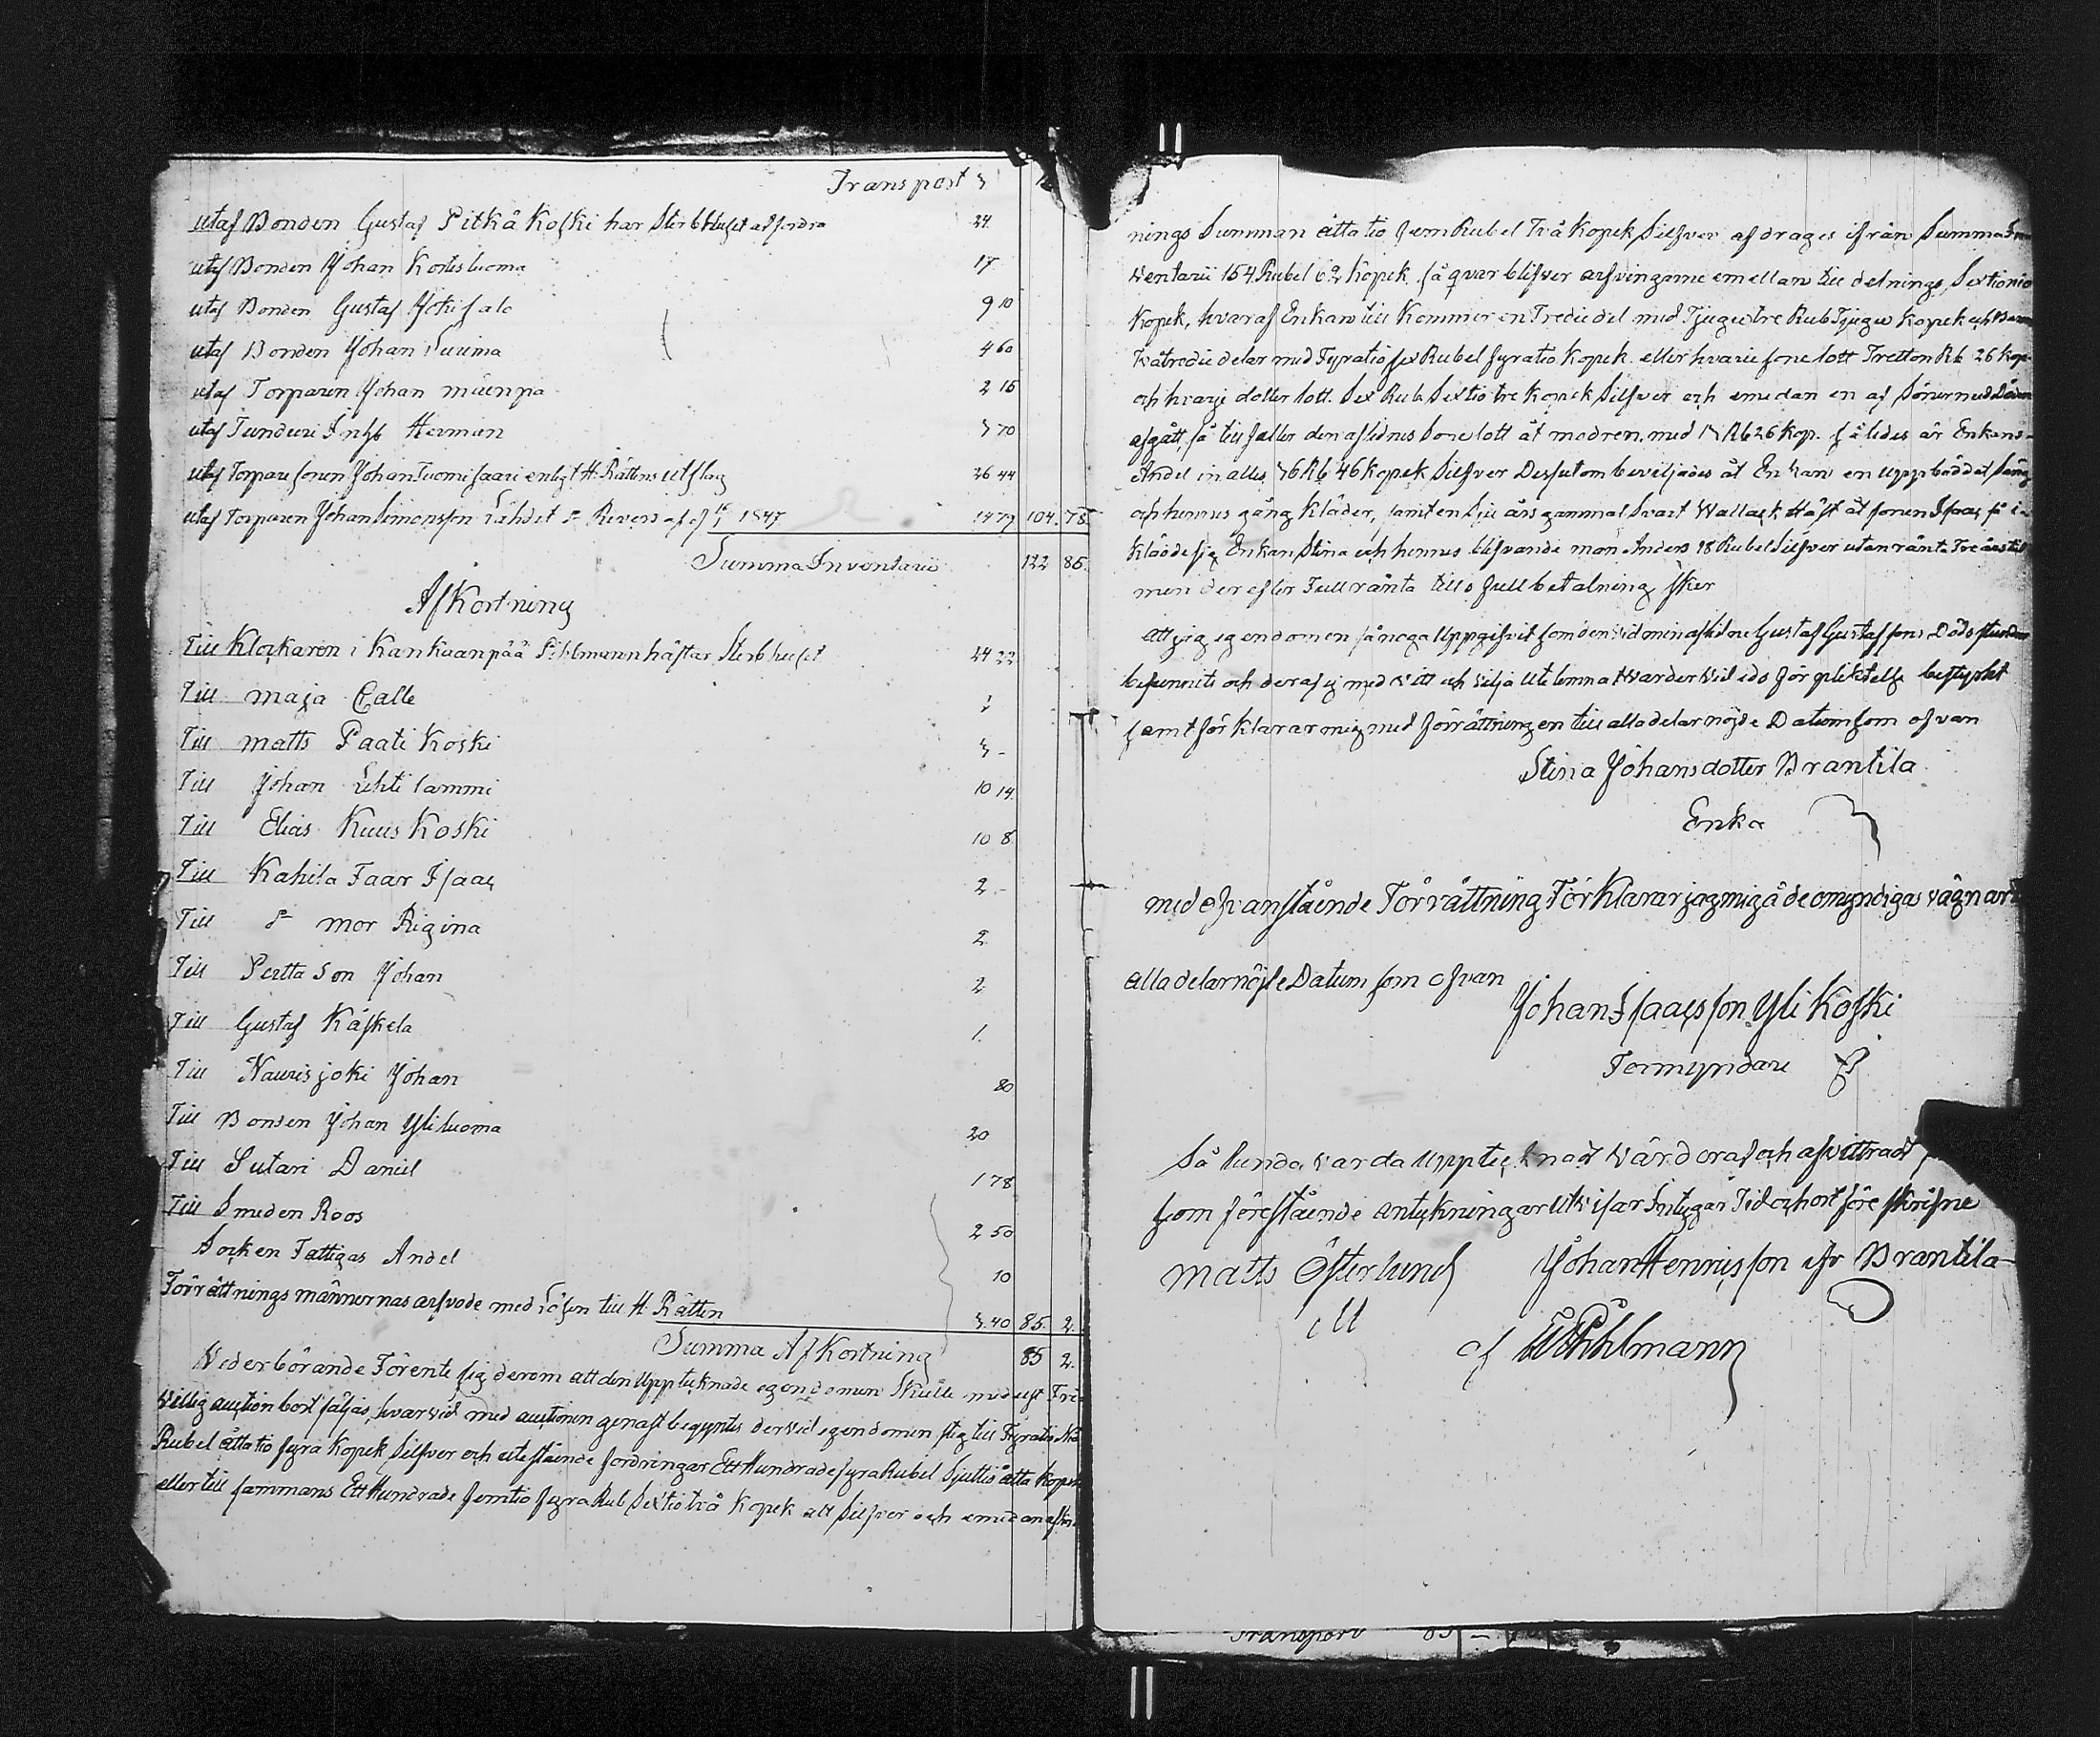 Transport 3
utaf Bonden Gustaf Pitkäkoski har Sterbhuset at fordra 24
utaf Bonden Johan Kortesluoma 17
utaf Bonden Gustaf Jokisalo 9 10
utaf Bonden Johan Suuma 4 60
utaf Torparen Johan müenpä 2 15
utaf Tunduri Inhb Herman 3 70
utaf Torpare sonen Johan Tuomisaari enligt H. Rättens utslag 26 44
utaf Torparen Johan Simonsson Lähdet Revers af 1847 14 79 104. 78.
Summa Inventarii 122 85.
Afkortning
Till Klockaren i Kankaanpää Påhlmann häftar Sterbhuset 24 22
Till maja Calle
Till matts Paatikoski 3 -
Till Johan Lehtilammi 10 14.
Till Elias Kuuskoski 10 8
Till Kahila Faar Isaac 2 -
Till mor Rigina 2
Till Pertta son Johan 2
Till Gustaf Käskela 1.
Till Naurisjoki Johan 80
Till Bonden Johan Yliluoma 20
Till Sutari Daniel 1 78
Till Smeden Roos 2 50
Socken Fattigas Andel 10
Förrättnings männernas arfvode med Lösen till H. Rätten 3.40 85. 2.
Summa Afkortning 85 2.
Vederbörande Förente sig derom att den upptecknade egendomen skulle medelst Fri
villig auction bortsäljas, hvarvid med auctionen genast begyntes dervid egendomen steg till Fyratio Nio
Rubel åttatio fyra Kopek Silfver och utestående fordringar Ett Hundrade fyra Rubel Sjuttio åtta Kopek
eller till sammans Ett Hundrade femtio fyra Rub Sextio två Kopek allt Silfver och emedan afkort
nings Summan åttatio fem Rubel Två Kopek Silfver afdrages ifrån Summa In
ventarii 154 Rubel 62 Kopek så qvarblifver arfvingarne emellan till delnings, Sextionio
Kopek, hvaraf Enkan till Kommer en Tredie del med Tjugutre Rub Tjugu Kopek och Barnen
tvåtredie delar med Fyratio sex Rubel fyratio Kopek eller hvarie sone lott Tretton Rb 26 kop
och hvarje dotter lott. Sex Rub Sextio tre Kopek Silfver och emedan en af Sönerne med Döden
afgått, så till faller den aflidnes sone lott åt modren. med 13 Rb 26 Kop. således är Enkans
Andel in alles 36 Rb 46 Kopek Silfver Dessutom beviljades åt Enkan en uppbäddat Säng
och hennes gång kläder, samt en Sju års gammal Svart Wallack Häst åt sonen Isaac så i
klädde sig Enkan Stina och hennes blifvande man Anders 18 Rubel Silfver utan ränta Tre års tid
men der efter Full ränta tills full betalning sker
Att jag egendomen så noga Uppgifvit som den vid min aflidne Gustaf Gustafssons Dödsstunden
befunnits och deraf ej med vett och vilja utelemnat Warder Vid eds förpliktelse bestyrkt
samt förklarar mig med förrättningen till alla delar nöjde Datum som ofvan
Stina Johansdotter Brantila
Enka
med ofvanstående Förrättning Förklarar jag mig å de omyndigas vägnar
alla delar nöjde Datum som ofvan
Johan Isaacsson Yli Koski
Formyndare
Så lunda vard a Upptecknat Värderat och afvittrat
som förestående anteckningar Utvisar Intygar Tid och ort före skrifne
Matts Österlund Johan Hennisson ifr Brantila
af Påhlmann
Transport 85 -